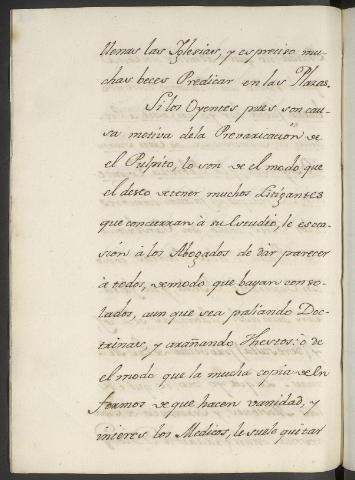 llenas las Iglesias, y es preciso mu-
chas beces Predicar en las Plazas.
Si los Oyentes pues son cau-
sa motiva dela Prevaricación de
el Pulpito, lo son de el modo, que
el deseo de tener muchos Litigantes
que concurran à su Estudio, le es oca-
sión à los Abogados de dár parecer
à todos, de modo, que bayan conso-
lados, aun que sea paliando Doc-
trinas, y arañando Thextos: ò de
el modo que la mucha copia de En
fermos de que hacen vanidad, y
interes los Medicos, le suele quitar